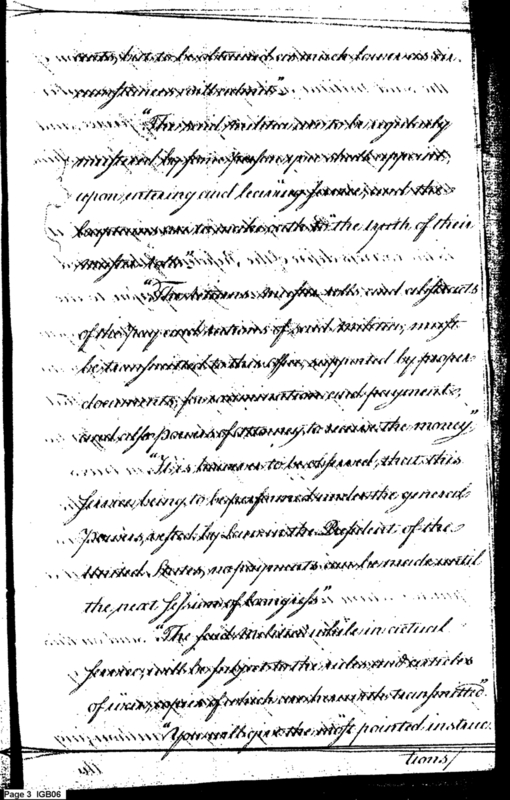 ants, but to be obtained as much lower as cir-
cumstances will admit"
"The said militia are to be regularly
mustered by some person you shall appoint,
upon entering and leaving service, and the
Captains are to make oath to "the truth of their
muster rolls"
"The returns, muster rolls and abstracts
of the pay and rations of said militia, must
be transmitted to this office, supported by proper
documents, for examination and payment,
and also powers of attorney to receive the money"
"It is however to be observed, that this
service, being to be performed under the general
Powers, vested by Law in the President of the
United States, no payments can be made until
the next session of Congress"
"The said militia while in actual
service, will be subject to the rules and articles
of war, copies of which are herewith transmitted"
"You will give the most pointed instruc-
tions/
Page 3 IGB06